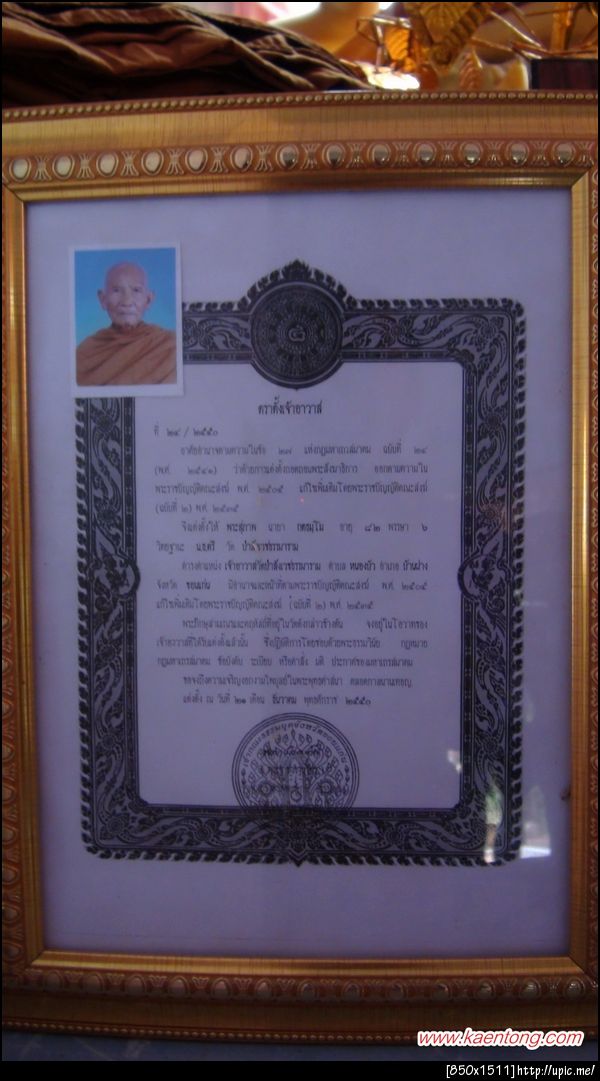 ตราตั้งเจ้าอาวาส
ที่ ๒๔ / ๒๕๕๐
อาศัยอำนาจตามความในข้อ ๒๗ แห่งกฎมหาเถรสมาคม ฉบับที่ ๒๔
(พ.ศ. ๒๕๔๑) ว่าด้วยการแต่งตั้งถอดถอนพระสังฆาธิการ ออกตามความใน
พระราชบัญญัติคณะสงฆ์ พ.ศ. ๒๕๐๕ แก้ไขเพิ่มเติมโดยพระราชบัญญัติคณะสงฆ์
(ฉบับที่ ๒) พ.ศ. ๒๕๓๕
จึงแต่งตั้งให้ พระสุภาพ ฉายา อายุ ๘๒ พรรษา ๖
วิทยฐานะ น.ธ.ตรี วัด
ดำรงตำแหน่ง ตำบล หนองบัว อำเภอ บ้านฝาง
จังหวัด ขอนแก่น มีอำนาจและหน้าที่ตามพระราชบัญญัติคณะสงฆ์ พ.ศ. ๒๕๐๕
แก้ไขเพิ่มเติมโดยพระราชบัญญัติคณะสงฆ์ (ฉบับที่ ๒) พ.ศ. ๒๕๓๕
พระภิกษุสามเณรและคฤหัสถ์ที่อยู่ในวัดดังกล่าวข้างต้น จงอยู่ในโอวาทของ
เจ้าอาวาสที่ได้รับแต่งตั้งแล้วนั้น ซึ่งปฏิบัติการโดยชอบด้วยพระธรรมวินัย กฎหมาย
กฎมหาเถรสมาคม ข้อบังคับ ระเบียบ หรือคำสั่ง มติ ประกาศของมหาเถรสมาคม
ขอจงถึงความเจริญงอกงามไพบูลย์ในพระพุทธศาสนา ตลอดกาลนานเทอญ
แต่งตั้ง ณ วันที่ ๒๑ เดือน ธันวาคม พุทธศักราช ๒๕๕๐
www.kaentong.com
[850x1511]http://upic.me/